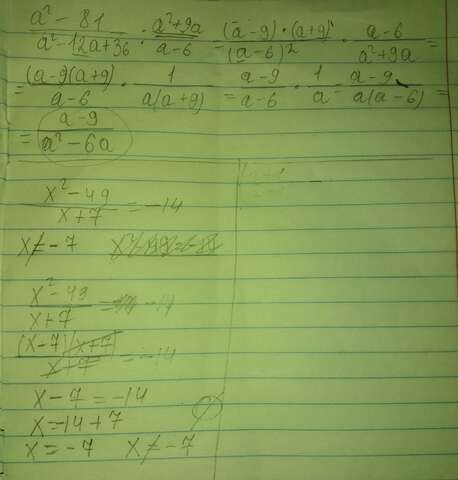 a² - 81 / a² - 12a + 36 : a² + 9a / a - 6 = (a - 9) · (a + 9) / (a - 6)² · a - 6 / a² + 9a =
= (a - 9)(a + 9) / a - 6 · 1 / a(a + 9) = a - 9 / a - 6 · 1 / a = a - 9 / a(a - 6) =
= a - 9 / a² - 6a
x² - 49 / x + 7 = -14
x ≠ -7
x² - 49 / x + 7 = -14
(x - 7)(x + 7) / x + 7 = -14
x - 7 = -14
x = -14 + 7
x = -7 x ≠ -7
∅